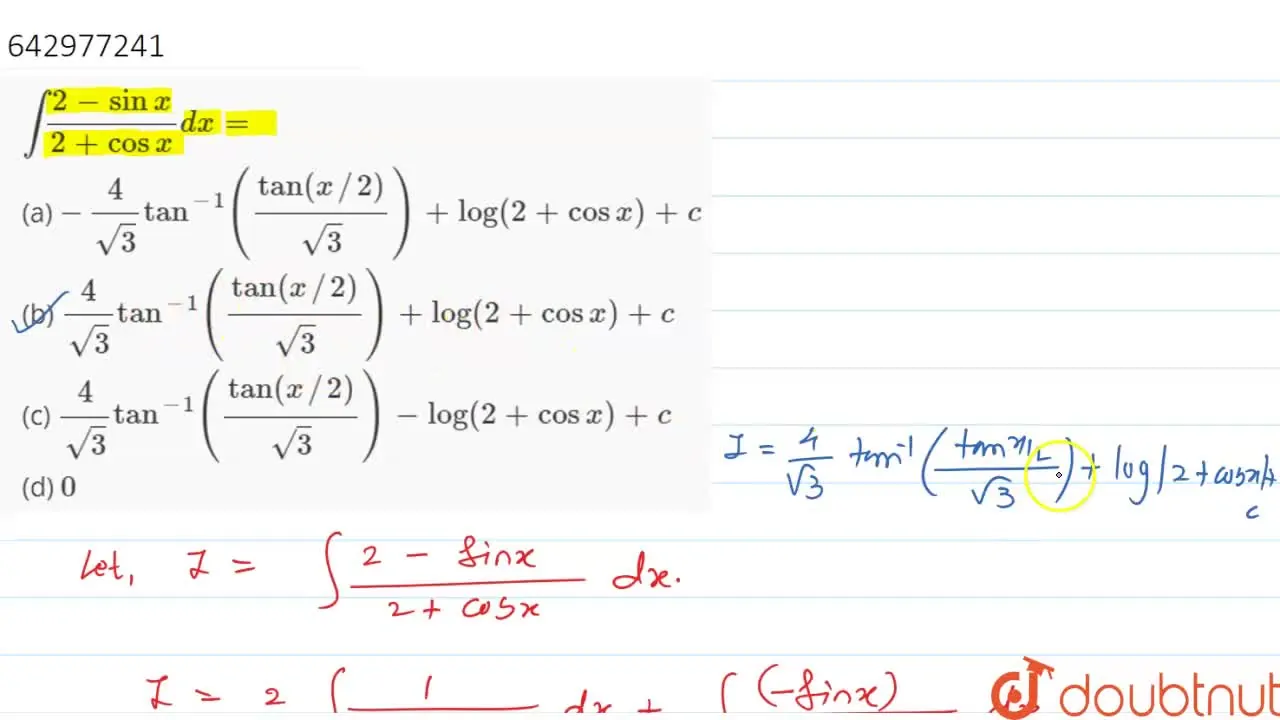 642977241
∫ (2 − sin x)/(2 + cos x) dx =
(a) − 4/√3 tan⁻¹ (tan(x/2)/√3) + log(2 + cos x) + c
(b) 4/√3 tan⁻¹ (tan(x/2)/√3) + log(2 + cos x) + c
(c) 4/√3 tan⁻¹ (tan(x/2)/√3) − log(2 + cos x) + c
(d) 0
I = 4/√3 tan⁻¹ (tan x/2/√3) + log|2 + cosx| +
c
Let, I = ∫ (2 − sinx)/(2 + cosx) dx.
I = 2 ∫ 1 dx + ∫ (−sinx)
doubtnut